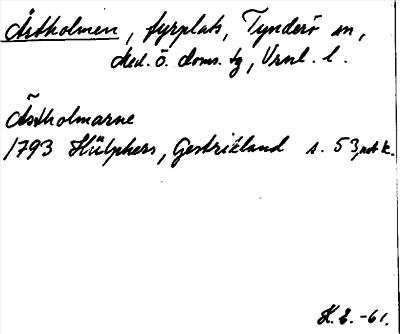 Åstholmen, fyrplats, Tynderö sn,
Med. ö. doms. tg, Vrnl. l.
Åstholmarne
1793 Hülphers, Gestrikland s. 53, not k.
H. E. -61.